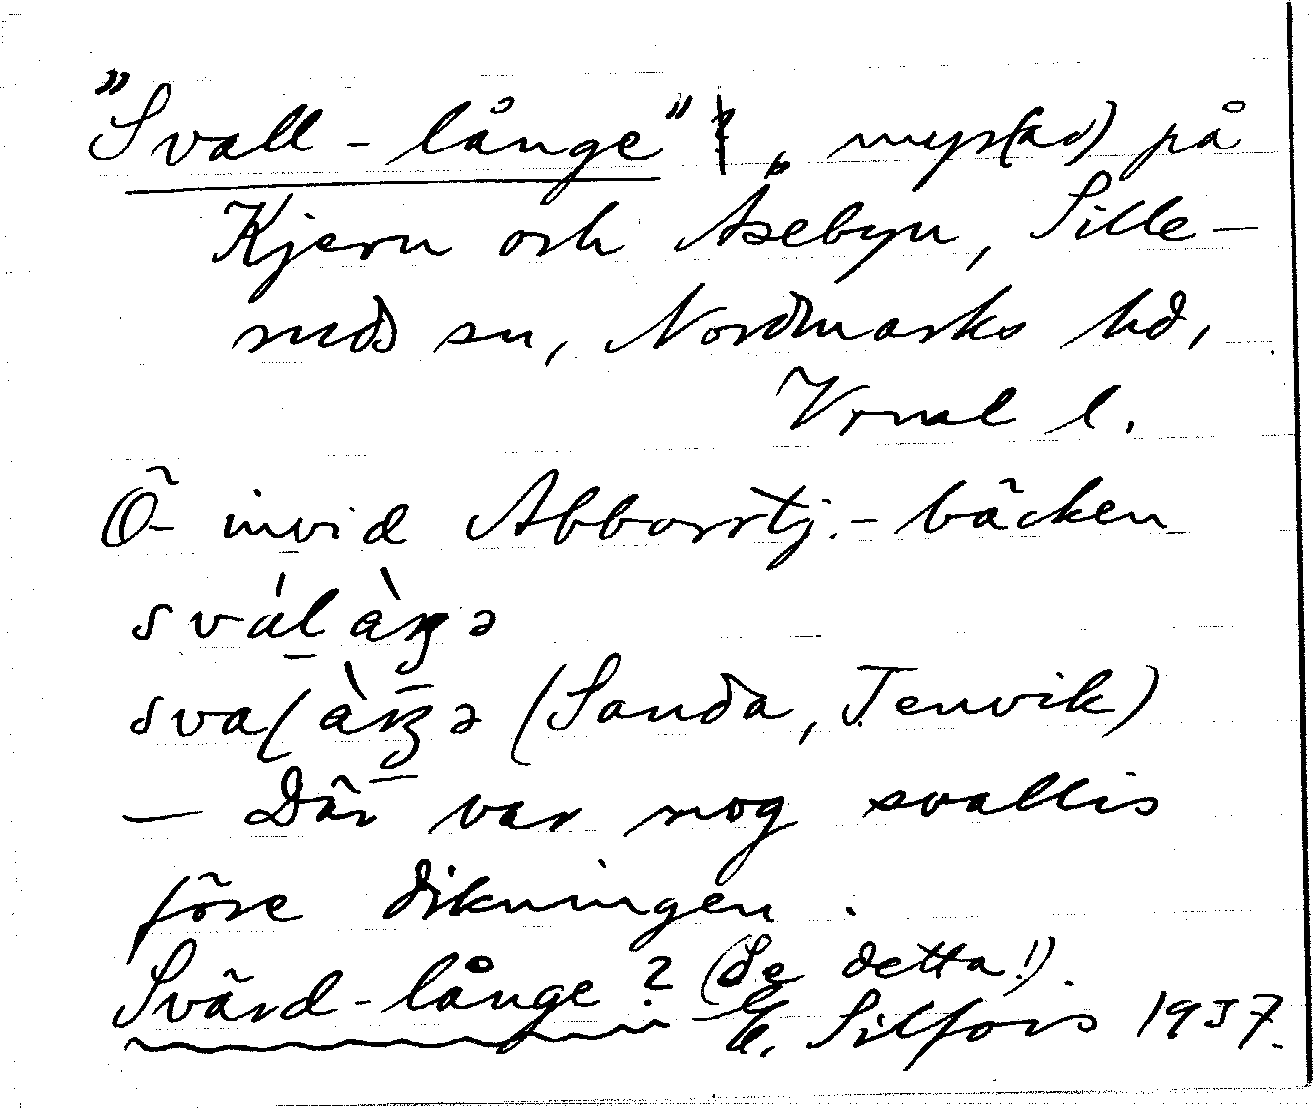 "Svall-långe", myr(ad) på
Kjern och Åsebyn, Sille-
ruds sn, Nordmarks hd,
Vrml l.
Ö invid Abborrtj.-bäcken
(Sanda, Tenvik)
— Där var nog svallis
före dikningen.
Svärd-långe? (Se detta!)
E. Silfors 1937.